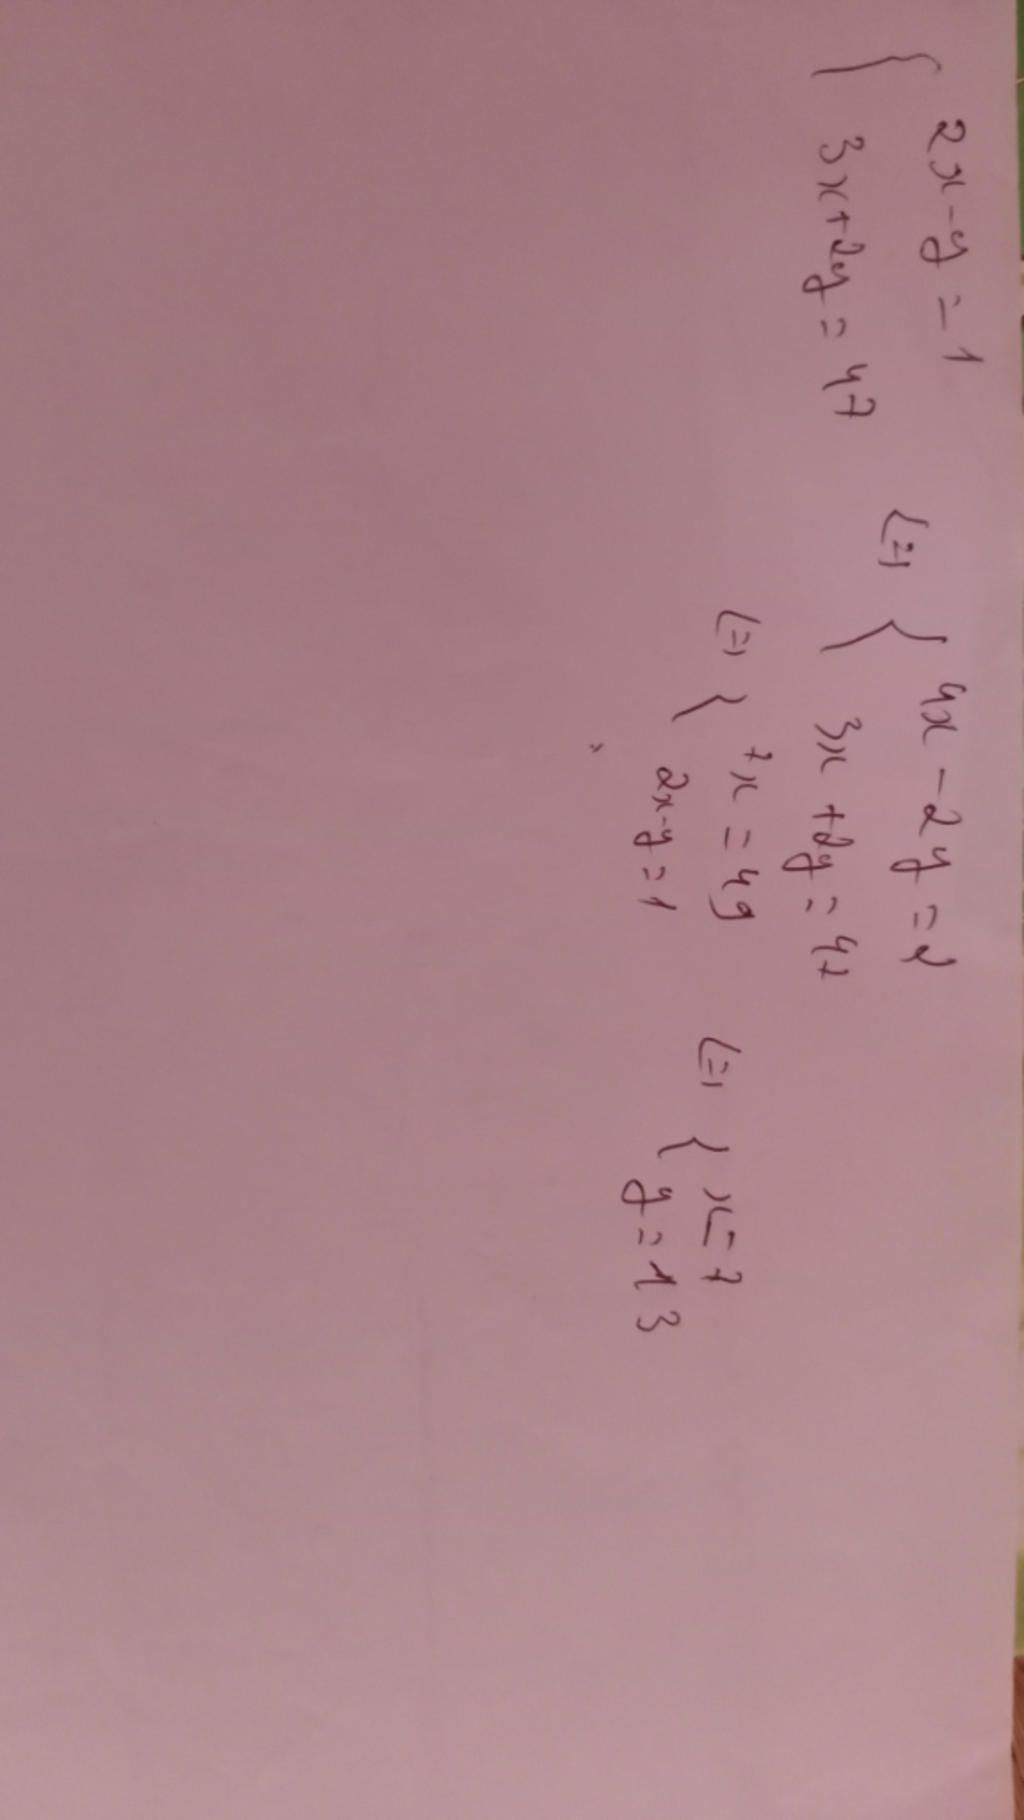 { 2x-y=1
3x+2y=47
(=) { 4x-2y=2
3x+2y=47
(=) { 7x=49
2x-y=1
(=) { x=7
y=13